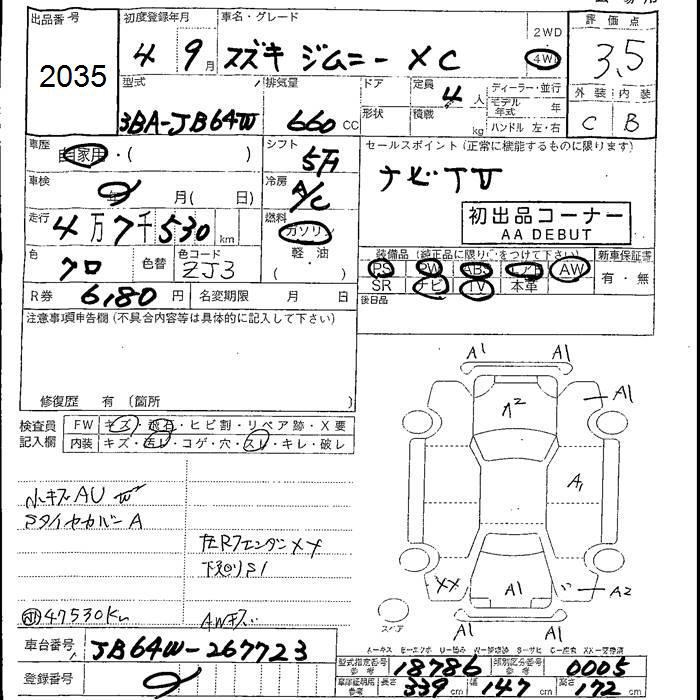 出品番号
2035
初度登録年月
4 9月
車名・グレード
スズキ ジムニー XC
2WD
4WD
評価点
3.5
外装 内装
C B
型式
3BA-JB64W
排気量
660 cc
ドア
形状
定員
4 人
積載
kg
ディーラー・並行
モデル年式 年
ハンドル 左・右
車歴
自家用・( )
シフト
5F
セールスポイント (正常に機能するものに限ります)
ナビTV
初出品コーナー
AA DEBUT
車検
年 月( 日)
冷房
A/C
走行
4万7千530km
燃料
ガソリン
軽・油
( )
色
クロ
色替
色コード
ZJ3
装備品 (純正品に限り○をつけて下さい)
PS PW ABS エアB AW
SR ナビ TV 本革
新車保証書
有・無
R券 6,180 円
名変期限 月 日
後日品
注意事項申告欄 (不具合内容等は具体的に記入して下さい)
修復歴 有 (箇所 )
検査員記入欄
FW キズ・飛石・ヒビ割・リペア跡・X要
内装 キズ・汚レ・コゲ・穴・スレ・キレ・破レ
小キズAU W
Sタイヤカバー A
左Rフェンダ XX
下廻りS1
47530Km
AWキズ
A1 A1
A2
A1
A1
XX
A1
A2
A1 A1
スペア
車台番号 JB64W-267723
登録番号
型式指定番号 参考 18786
類別区分番号 参考 0005
車庫証明用 参考 長さ 339 cm 幅 147 cm 高さ 172 cm